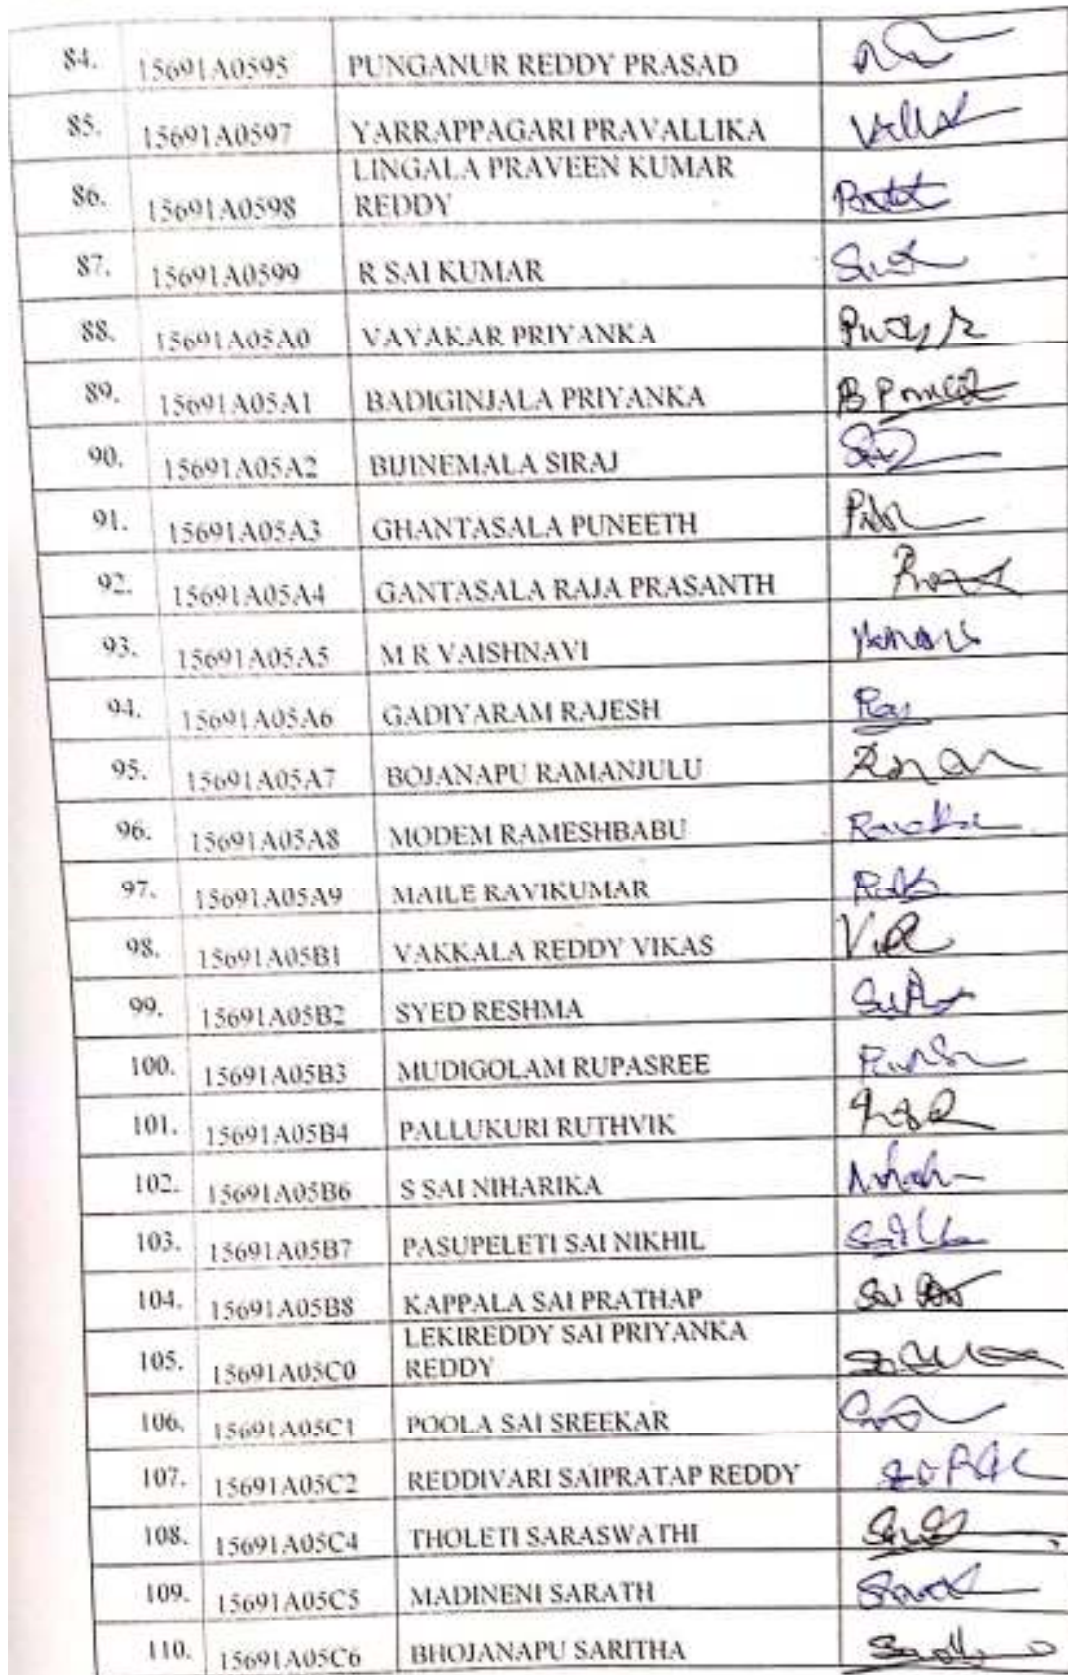 84. 15691A0595 PUNGANUR REDDY PRASAD
85. 15691A0597 YARRAPPAGARI PRAVALLIKA
86. 15691A0598 LINGALA PRAVEEN KUMAR
REDDY
87. 15691A0599 R SAI KUMAR
88. 15691A05A0 VAYAKAR PRIYANKA
89. 15691A05A1 BADIGINJALA PRIYANKA
90. 15691A05A2 BIJINEMALA SIRAJ
91. 15691A05A3 GHANTASALA PUNEETH
92. 15691A05A4 GANTASALA RAJA PRASANTH
93. 15691A05A5 M R VAISHNAVI
94. 15691A05A6 GADIYARAM RAJESH
95. 15691A05A7 BOJANAPU RAMANJULU
96. 15691A05A8 MODEM RAMESHBABU
97. 15691A05A9 MAILE RAVIKUMAR
98. 15691A05B1 VAKKALA REDDY VIKAS
99. 15691A05B2 SYED RESHMA
100. 15691A05B3 MUDIGOLAM RUPASREE
101. 15691A05B4 PALLUKURI RUTHVIK
102. 15691A05B6 S SAI NIHARIKA
103. 15691A05B7 PASUPELETI SAI NIKHIL
104. 15691A05B8 KAPPALA SAI PRATHAP
105. 15691A05C0 LEKIREDDY SAI PRIYANKA
REDDY
106. 15691A05C1 POOLA SAI SREEKAR
107. 15691A05C2 REDDIVARI SAIPRATAP REDDY
108. 15691A05C4 THOLETI SARASWATHI
109. 15691A05C5 MADINENI SARATH
110. 15691A05C6 BHOJANAPU SARITHA